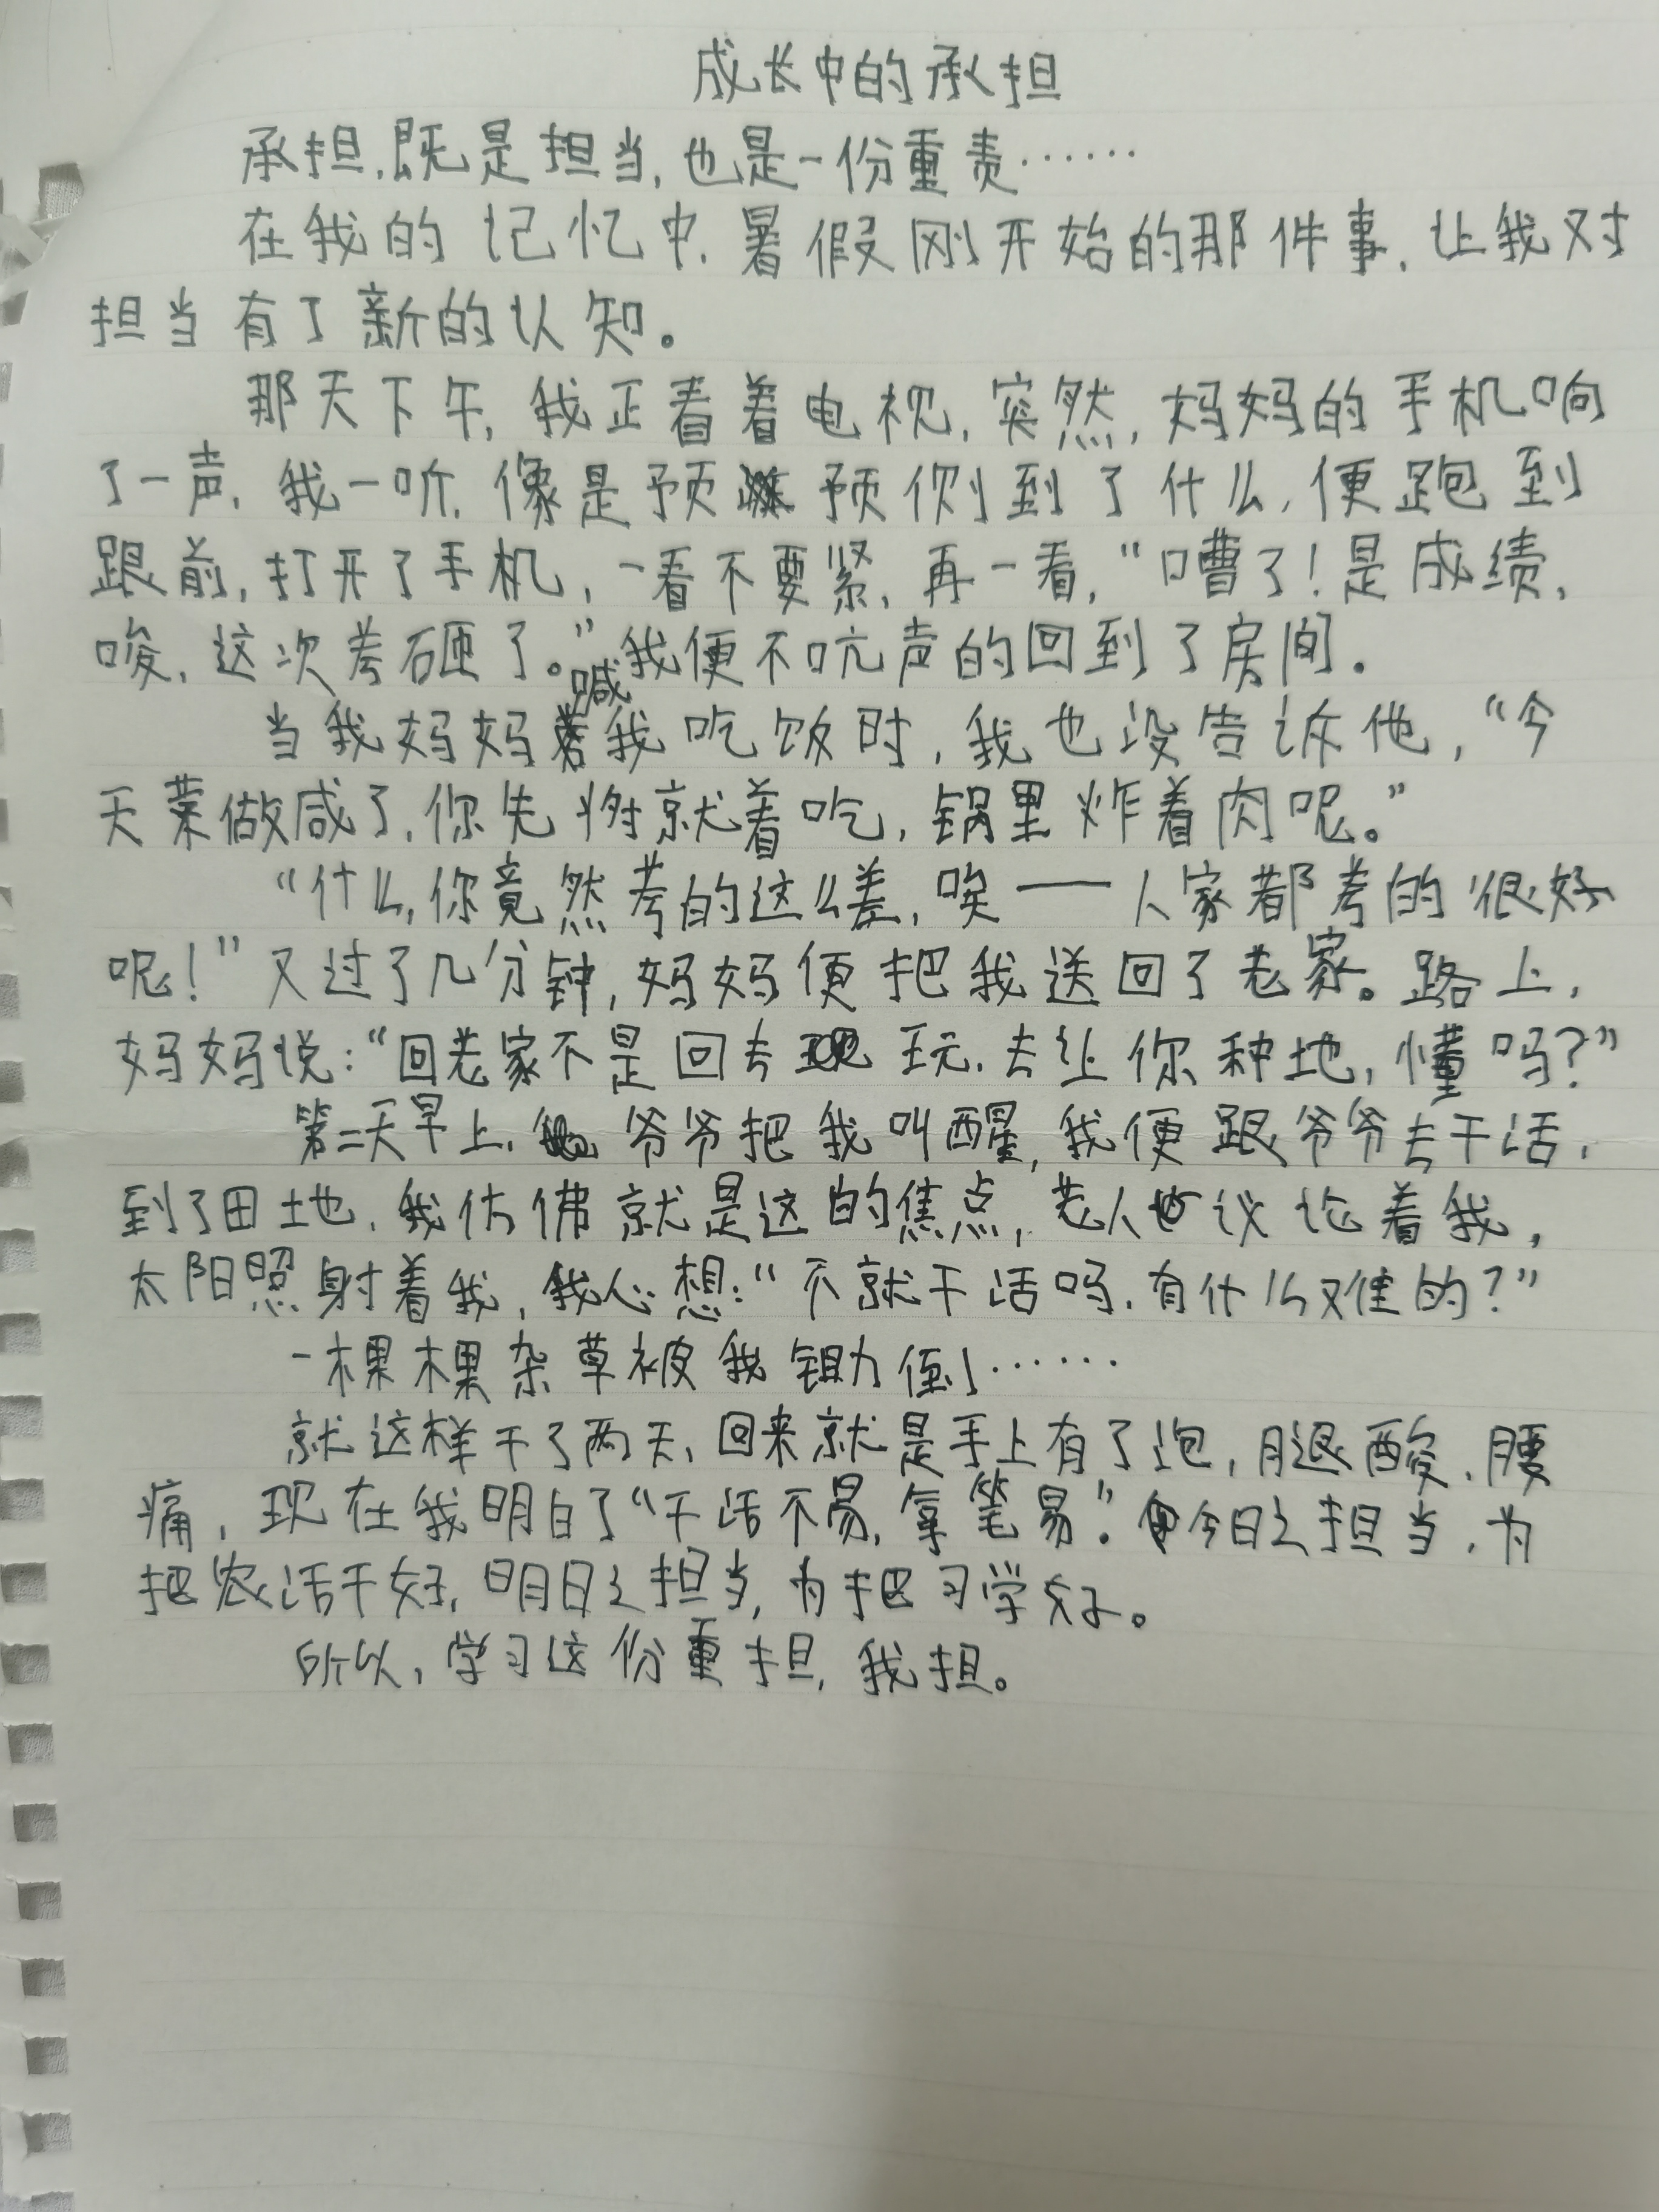 成长中的承担
承担,既是担当,也是一份重责……
在我的记忆中,暑假刚开始的那件事,让我对
担当有了新的认知。
那天下午,我正看着电视,突然,妈妈的手机响
了一声,我一听,像是预预侧到了什么,便跑到
跟前,打开了手机,一看不要紧,再一看,“嘈了!是成绩,
唆,这次考砸了。”我便不吭声的回到了房间。
当我妈妈喊我吃饭时,我也没告诉他,“今
天菜做咸了,你先将就着吃,锅里炸着肉呢。”
“什么,你竟然考的这么差,唉——人家都考的很好
呢!”又过了几分钟,妈妈便把我送回了老家。路上,
妈妈说:“回老家不是回去玩,去让你种地,懂吗?”
第二天早上,爷爷把我叫醒,我便跟爷爷去干活,
到了田地,我仿佛就是这的焦点,老人也议论着我,
太阳照射着我,我心想:“不就干活吗,有什么难的?”
一棵棵杂草被我锄倒……
就这样干了两天,回来就是手上有了泡,腿酸,腰
痛,现在我明白了“干活不易,拿笔易”。今日之担当,为
把农活干好,明日之担当,为把习学好。
所以,学习这份重担,我担。